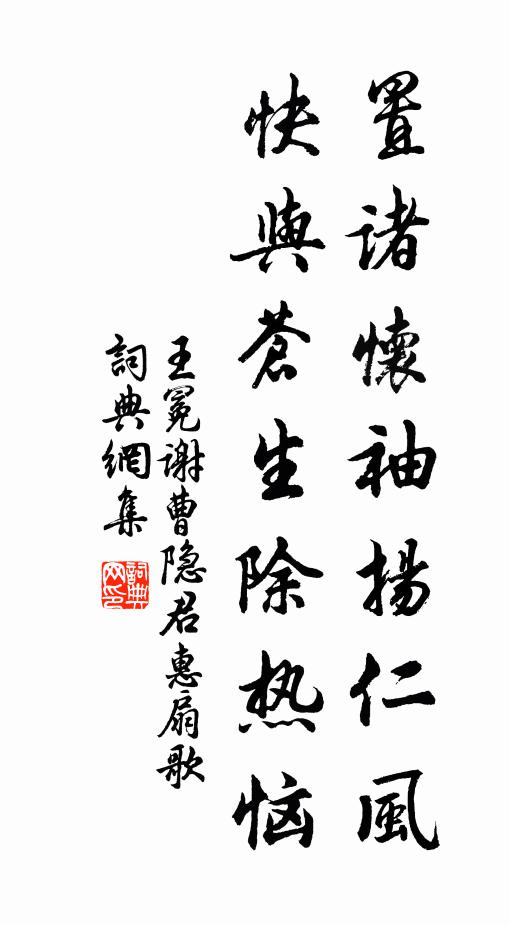 置諸懷袖揚仁風
快與蒼生除热恼
王冕谢曹隐君惠扇歌
詞典網集
詞典网印